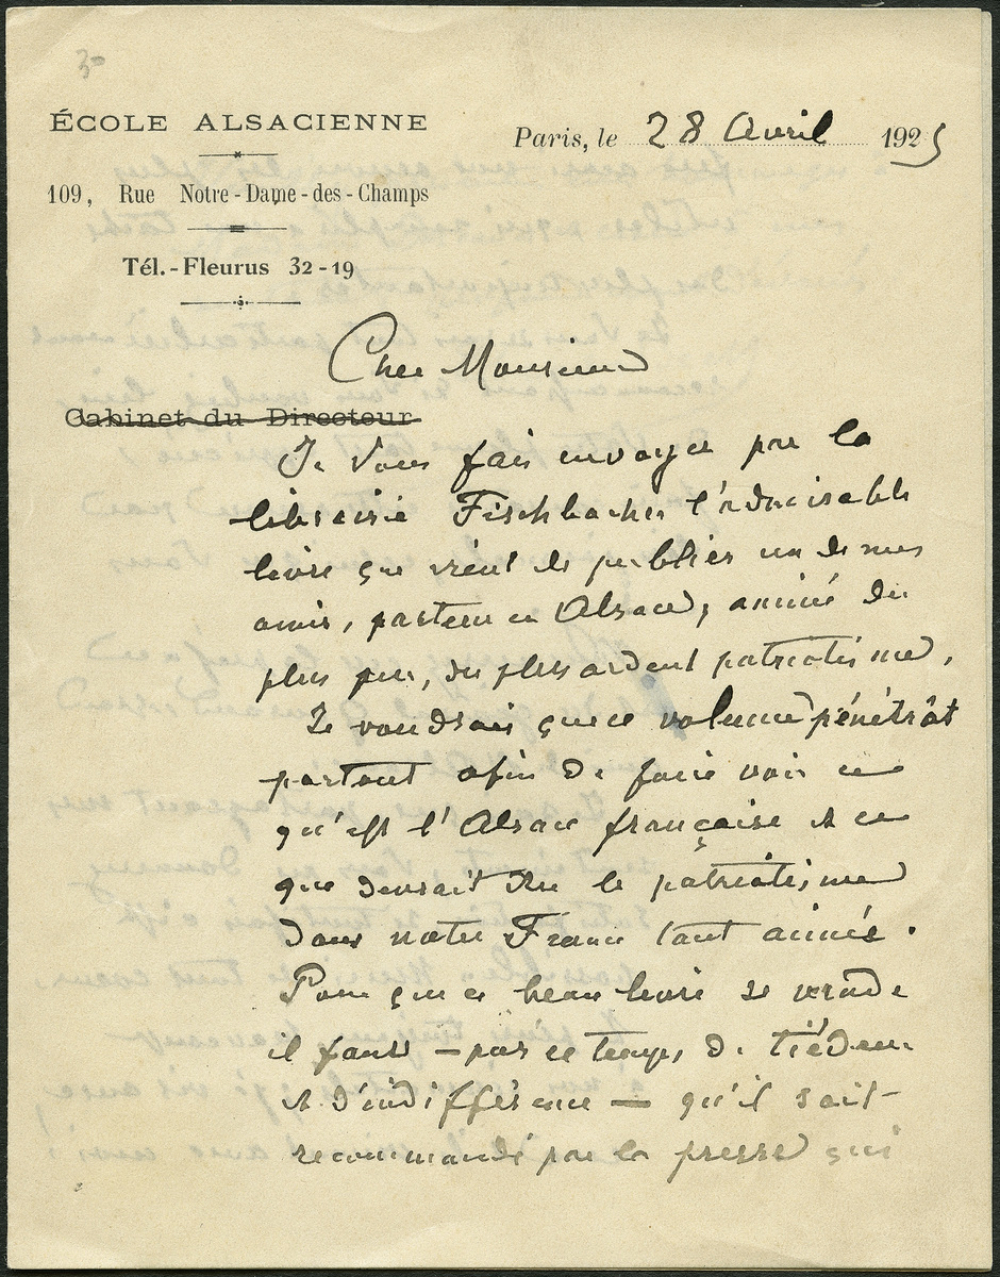 30
ÉCOLE ALSACIENNE
109, Rue Notre-Dame-des-Champs
Tél.-Fleurus 32-19
Paris, le 28 Avril 1925
Cher Monsieur
Cabinet du Directeur
Je vous fais envoyer par la
librairie Fischbacher l'admirable
livre que vient de publier un de mes
amis, pasteur en Alsace, animé du
plus pur, du plus ardent patriotisme.
Je voudrais que ce volume pénétrât
partout afin de faire voir ce
qu'est l'Alsace française et ce
que devrait être le patriotisme
dans notre France tant aimée.
Pour que ce beau livre se vende
il faut — par ce temps de tiédeur
et d'indifférence — qu'il soit
recommandé par la presse qui